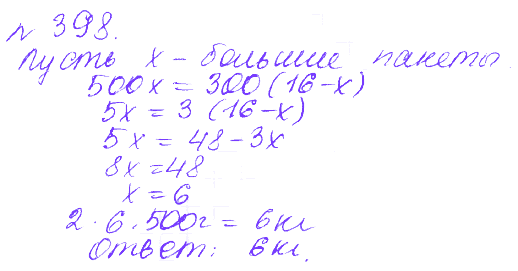 № 398.
Пусть x – большие пакеты.
500x = 300 (16 – x)
5x = 3 (16 – x)
5x = 48 – 3x
8x = 48
x = 6
2 · 6 · 500г = 6кг
Ответ: 6кг.